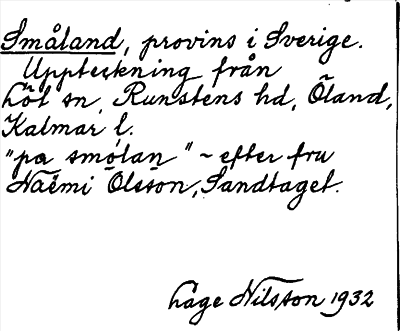 Småland, provins i Sverige.
Uppteckning från
Löt sn, Runstens hd, Öland,
Kalmar l.
"pa smólan" ~ efter fru
Naëmi Olsson, Sandtaget.
Låge Nilsson 1932